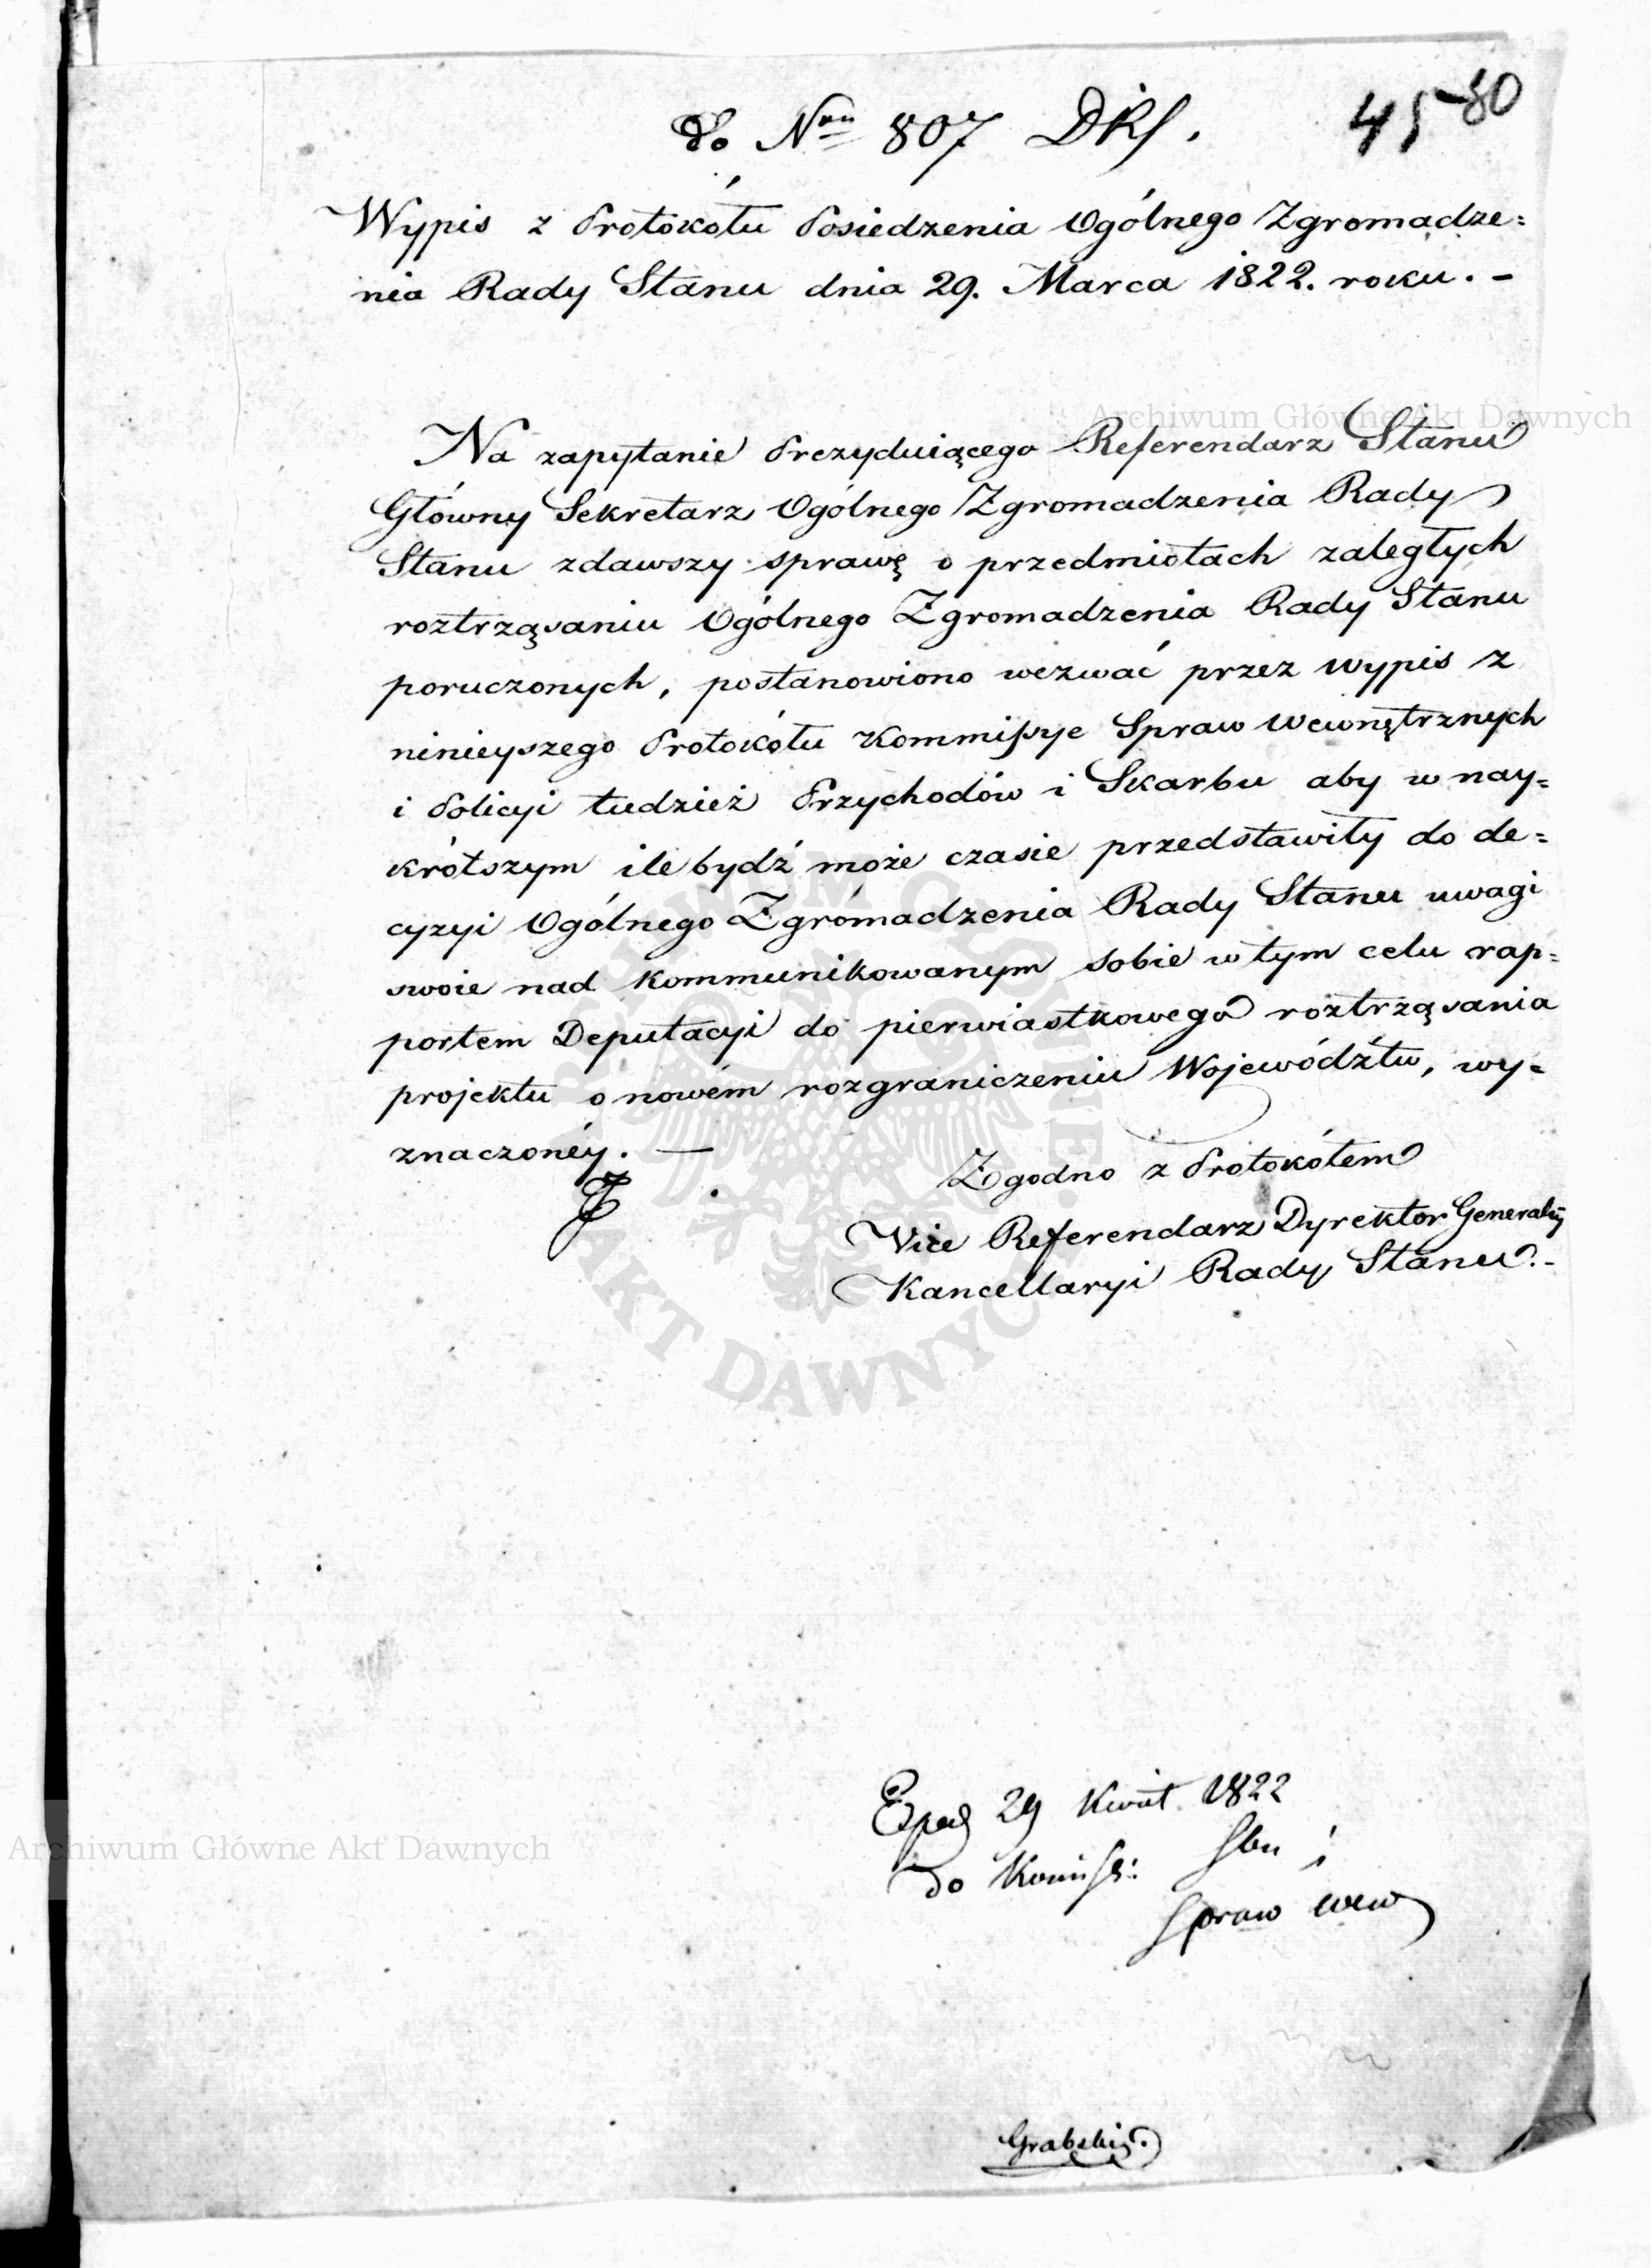 do Nru 807 DRS. 45-80
Wypis z Protokółu Posiedzenia Ogólnego Zgromadze=
nia Rady Stanu dnia 29. Marca 1822. roku. -
Archiwum Główne Akt Dawnych
Na zapytanie Prezyduiącego Referendarz Stanu
Główny Sekretarz Ogólnego Zgromadzenia Rady
Stanu zdawszy sprawę o przedmiotach zaległych
roztrząsaniu Ogólnego Zgromadzenia Rady Stanu
poruczonych, postanowiono wezwać przez wypis z
ninieyszego Protokółu Kommißye Spraw Wewnętrznych
i Policyi tudzież Przychodów i Skarbu aby w nay=
krótszym ile bydź może czasie przedstawiły do de=
cyzyi Ogólnego Zgromadzenia Rady Stanu uwagi
swoie nad kommunikowanym sobie w tym celu rap=
portem Deputacyi do pierwiastkowego roztrząsania
projektu o nowém rozgraniczeniu Województw, wy=
znaczonéy. —
Zgodno z Protokółem
Vice Referendarz Dyrektor Generalny
Kancellaryi Rady Stanu. -
ARCHIWUM GŁÓWNE AKT DAWNYCH
Exped 29 Kwiet 1822
do Kommiss: Sbu i
Spraw wew
Archiwum Główne Akt Dawnych
Grabski.